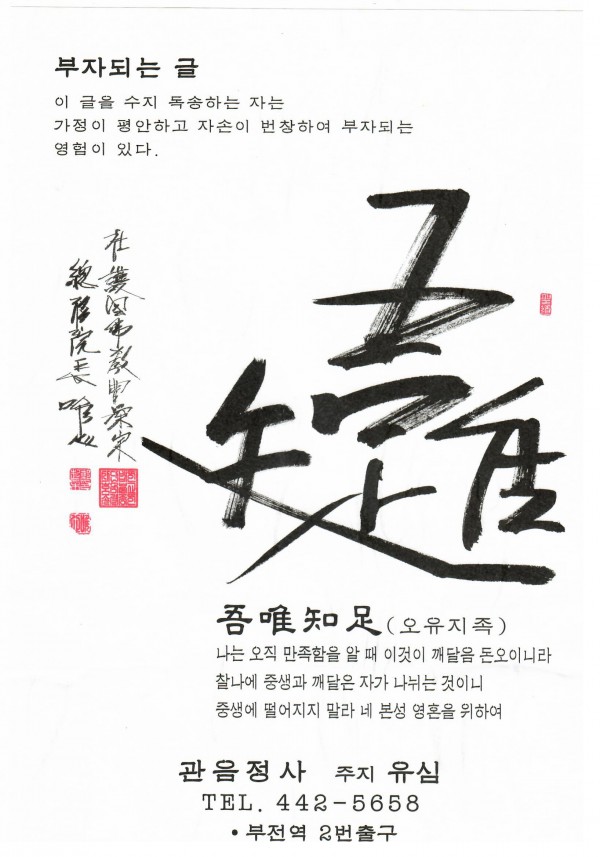 부자되는 글
이 글을 수지 독송하는 자는
가정이 평안하고 자손이 번창하여 부자되는
영험이 있다.
社護国佛教曹溪宗
總務院長 唯心
吾唯知足(오유지족)
나는 오직 만족함을 알 때 이것이 깨달음 돈오이니라
찰나에 중생과 깨달은 자가 나뉘는 것이니
중생에 떨어지지 말라 네 본성 영혼을 위하여
관음정사 주지 유심
TEL. 442-5658
• 부전역 2번출구